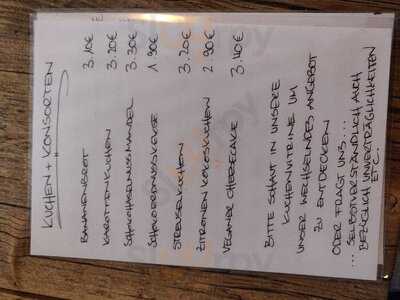 KUCHEN + KONSORTEN
BANANENBROT 3.10€
KAROTTENKUCHEN 3.20€
SCHOKOHASELNUSSMANDEL 3.30€
SCHOKOCROSSKEKSE 1.90€
STREUSELKUCHEN 3.20€
ZITRONEN KOKOSKUCHEN 2.90€
VEGANER CHEESECAKE 3.40€
BITTE SCHAUT IN UNSERE
KUCHENVITRINE UM
UNSER WECHSELNDES ANGEBOT
ZU ENTDECKEN
ODER FRAGT UNS....
... SELBSTVERSTÄNDLICH AUCH
BEZÜGLICH UNVERTRÄGLICHKEITEN
ETC.